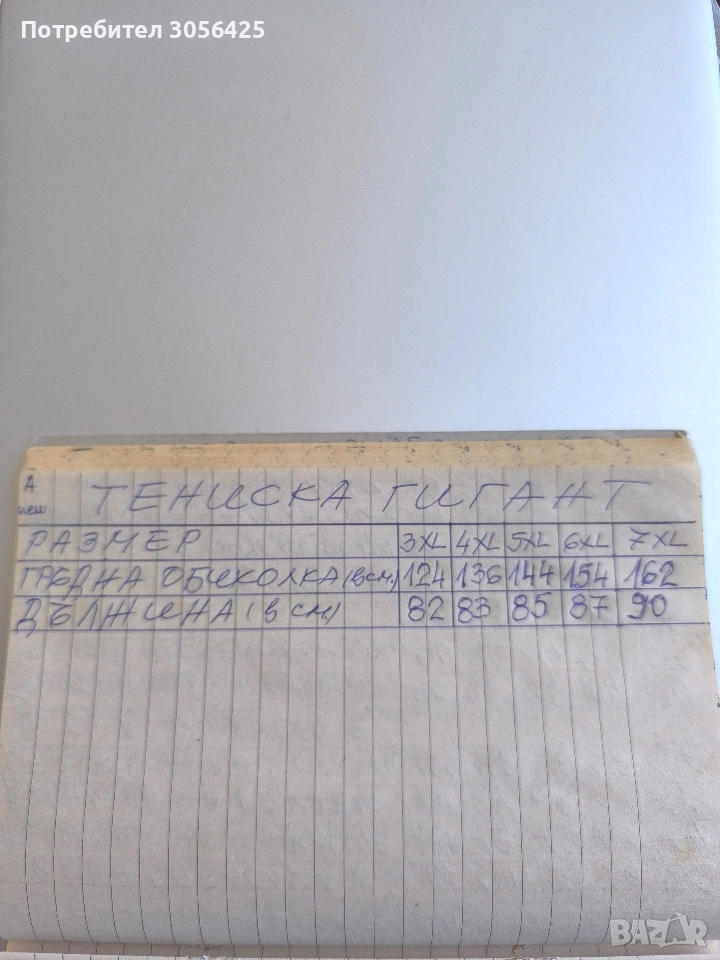 Потребител 3056425
А
ТЕНИСКА ГИГАНТ
РАЗМЕР 3XL 4XL 5XL 6XL 7XL
ГРЪДНА ОБИКОЛКА (в см.) 124 136 144 154 162
ДЪЛЖИНА (в см.) 82 83 85 87 90
BAZAR